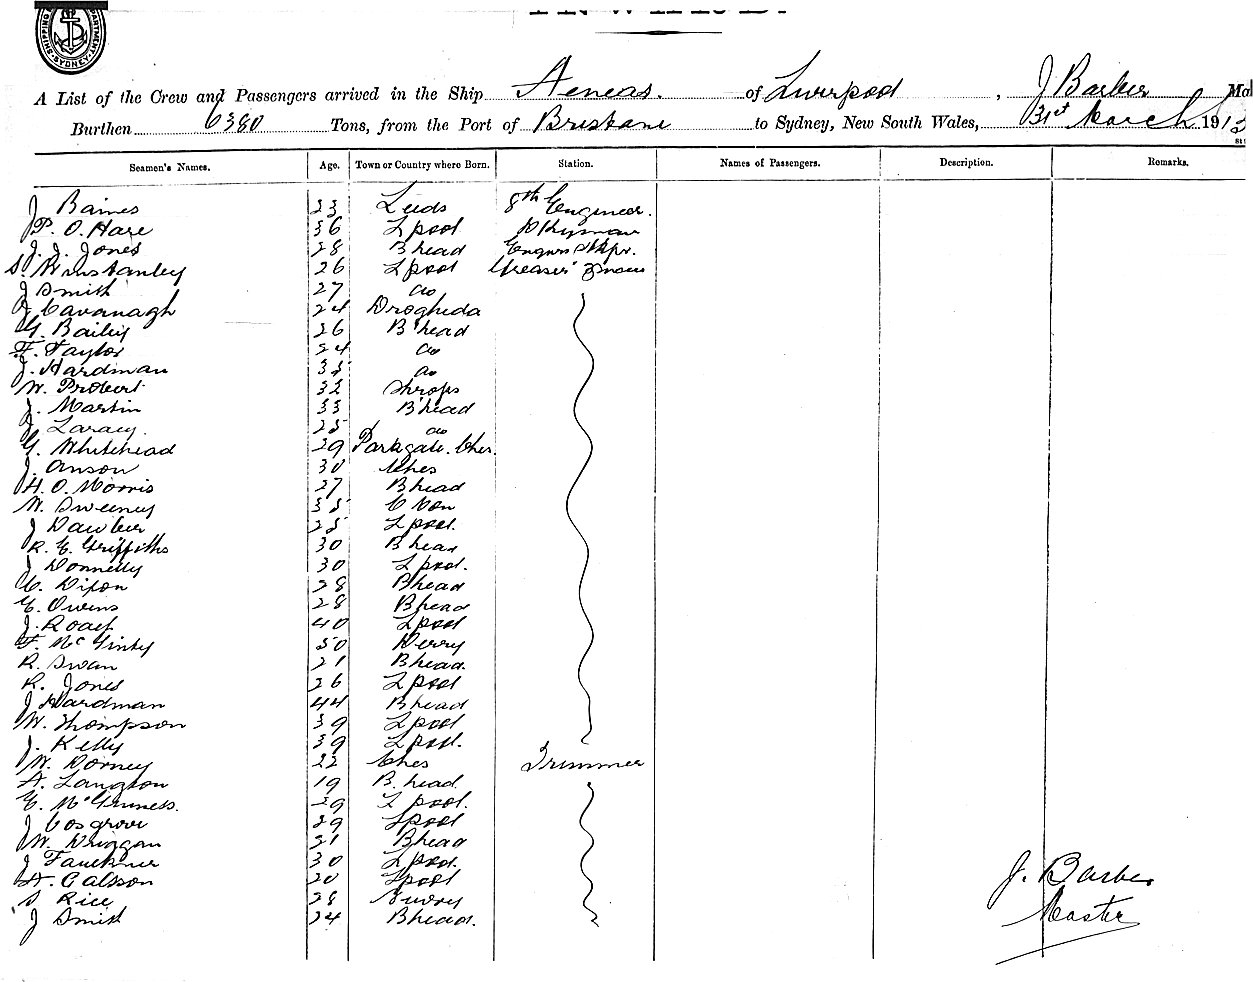 SHIPPING DEPARTMENT SYDNEY
INWARD.
A List of the Crew and Passengers arrived in the Ship Aeneas. of Liverpool, J Barber
Burthen 6380 Tons, from the Port of Brisbane to Sydney, New South Wales, 31st March 191
Seamen's Names. Age. Town or Country where Born. Station. Names of Passengers. Description. Remarks.
J Baines 33 Leeds 8th Engineer.
P. O. Hare 36 Lpool
J. J. Jones 28 Bhead Engnrs Stkpr.
S. Winstanley 26 Lpool Greaser
J Smith 27 do
J Cavanagh 24 Drogheda
G. Bailey 26 B'head
F. Taylor 24 do
J. Hardman 35 do
W. Probert 32 Shrops
J. Martin 33 B'head
J Laracy. 25 do
G. Whitehead 29 Parkgate. Ches.
J. Anson 30 Ches
H. O. Morris 27 Bhead
W. Sweeney 35 C Von
J Dawber 25 Lpool.
R. E. Griffiths 30 Bhead
J Donnelly 30 Lpool.
C. Dixon 28 Bhead
E. Owens 28 Bhead
J. Roach 40 Lpool
F. McGinty 50 Derry
R. Swan 21 Bhead.
R. Jones 26 Lpool
J Hardman 44 Bhead
W. Thompson 39 Lpool
J. Kelly 39 Lpool.
W. Dorney 22 Ches Trimmer
A. Langton 19 B. head
E. McGuiness. 29 Lpool.
J Cosgrove 29 Lpool
W. Duggan 21 Bhead
J Faulkner 30 Lpool.
20 Lpool
S Rice 28 Newry
J Smith 24 Bhead.
J. Barber
Master